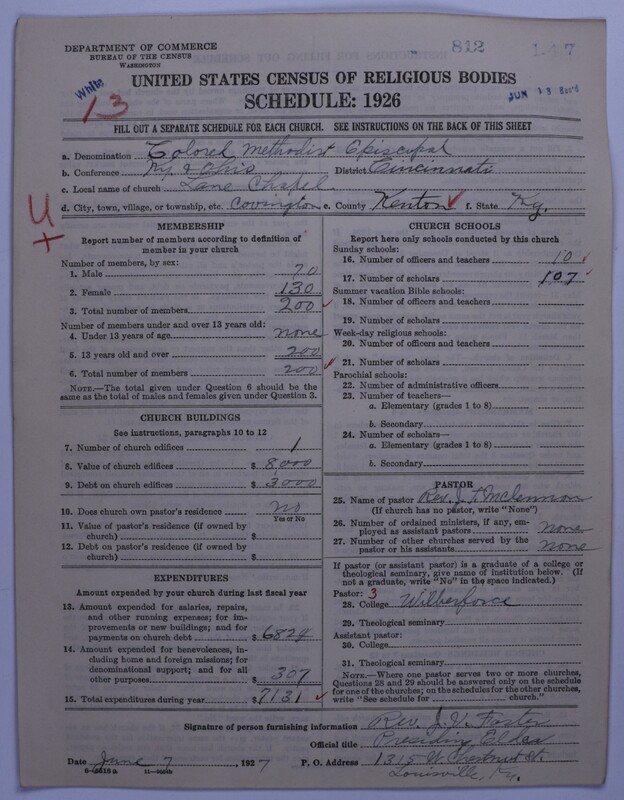 DEPARTMENT OF COMMERCE
BUREAU OF THE CENSUS
WASHINGTON
812
147
White
13
JUN 13 Rec'd
UNITED STATES CENSUS OF RELIGIOUS BODIES
SCHEDULE: 1926
FILL OUT A SEPARATE SCHEDULE FOR EACH CHURCH. SEE INSTRUCTIONS ON THE BACK OF THIS SHEET
a. Denomination Colored Methodist Episcopal
b. Conference Ky & Ohio District Cincinnati
c. Local name of church Lane Chapel
d. City, town, village, or township, etc. Covington e. County Kenton f. State Ky.
U
MEMBERSHIP
Report number of members according to definition of
member in your church
Number of members, by sex:
1. Male 70
2. Female 130
3. Total number of members 200
Number of members under and over 13 years old:
4. Under 13 years of age none
5. 13 years old and over 200
6. Total number of members 200
NOTE.—The total given under Question 6 should be
same as the total of males and females given under Question 3.
CHURCH BUILDINGS
See instructions, paragraphs 10 to 12
7. Number of church edifices 1
8. Value of church edifices $ 8,000
9. Debt on church edifices $ 3000
10. Does church own pastor's residence? No
Yes or No
11. Value of pastor's residence (if owned by
church) $
12. Debt on pastor's residence (if owned by
church) $
EXPENDITURES
Amount expended by your church during last fiscal year
13. Amount expended for salaries, repairs,
and other running expenses; for im-
provements or new buildings; and for
payments on church debt $ 6824
14. Amount expended for benevolences, in-
cluding home and foreign missions; for
denominational support; and for all
other purposes $ 307
15. Total expenditures during year $ 7131
CHURCH SCHOOLS
Report here only schools conducted by this church
Sunday schools:
16. Number of officers and teachers 10
17. Number of scholars 107
Summer vacation Bible schools:
18. Number of officers and teachers
19. Number of scholars
Week-day religious schools:
20. Number of officers and teachers
21. Number of scholars
Parochial schools:
22. Number of administrative officers
23. Number of teachers—
a. Elementary (grades 1 to 8)
b. Secondary
24. Number of scholars—
a. Elementary (grades 1 to 8)
b. Secondary
PASTOR
25. Name of pastor Rev. J. F. McLennon
(If church has no pastor, write "None")
26. Number of ordained ministers, if any, em-
ployed as assistant pastors none
27. Number of other churches served by the
pastor or his assistants none
If pastor (or assistant pastor) is a graduate of a college or
theological seminary, give name of institution below. (If
not a graduate, write "No" in the space indicated.)
Pastor: 3
28. College Wilberforce
29. Theological seminary
Assistant pastor:
30. College
31. Theological seminary
NOTE.—Where one pastor serves two or more churches,
Questions 28 and 29 should be answered only on the schedule
for one of the churches; on the schedules for the other churches,
write "See schedule for church."
Signature of person furnishing information Rev. J. V. Foster
Official title Presiding Elder
Date June 7, 1927 P. O. Address 1315 W. Chestnut St.
Louisville, Ky.